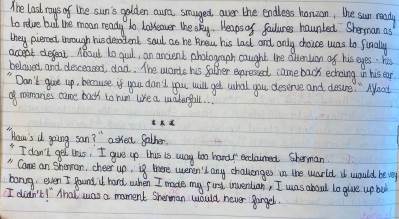 The last rays of the sun's golden aura smuged over the endless horizon, the sun ready
to retire but the moon ready to takeover the sky. Heaps of failures haunted Sherman as
they pierced through his decadent soul as he knew his last and only choice was to finally
accept defeat. About to quit, an ancient photograph caught the attention of his eyes - his
beloved and deceased, dad. The words his father expressed came back echoing in his ear.
"Don't give up, because if you don't you will get what you deserve and desire." A flood
of memories came back to him like a waterfall...
* * *
"How's it going son?" asked father.
"I don't get this, I give up this is way too hard" exclaimed Sherman.
"Come on Sherman, cheer up, if there weren't any challenges in the world it would be very
boring, even I found it hard when I made my first invention, I was about to give up but
I didn't!" That was a moment Sherman would never forget.